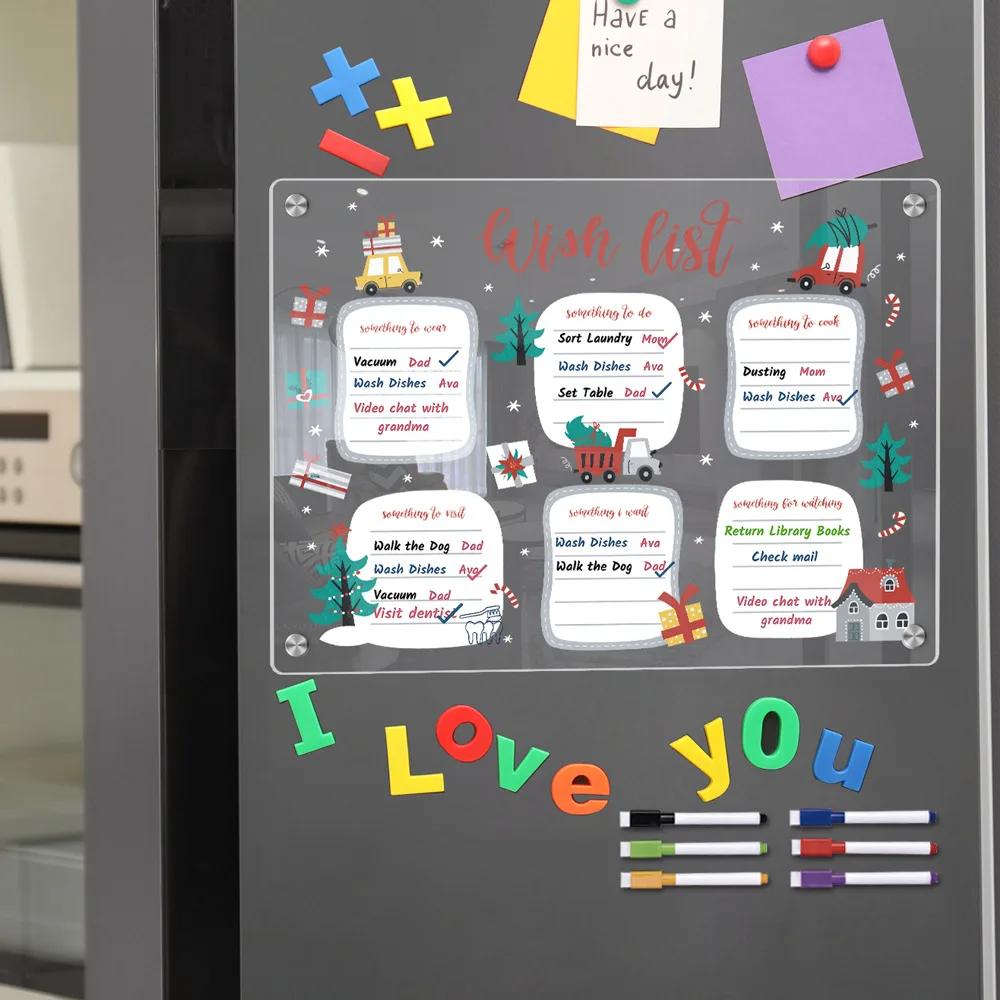 Have a
nice
day!
Wish list
something to wear
Vacuum Dad
Wash Dishes Ava
Video chat with
grandma
something to do
Sort Laundry Mom
Wash Dishes Ava
Set Table Dad
something to cook
Dusting Mom
Wash Dishes Ava
something to visit
Walk the Dog Dad
Wash Dishes Ava
Vacuum Dad
Visit dentist
something i want
Wash Dishes Ava
Walk the Dog Dad
something for watching
Return Library Books
Check mail
Video chat with
grandma
I Love you